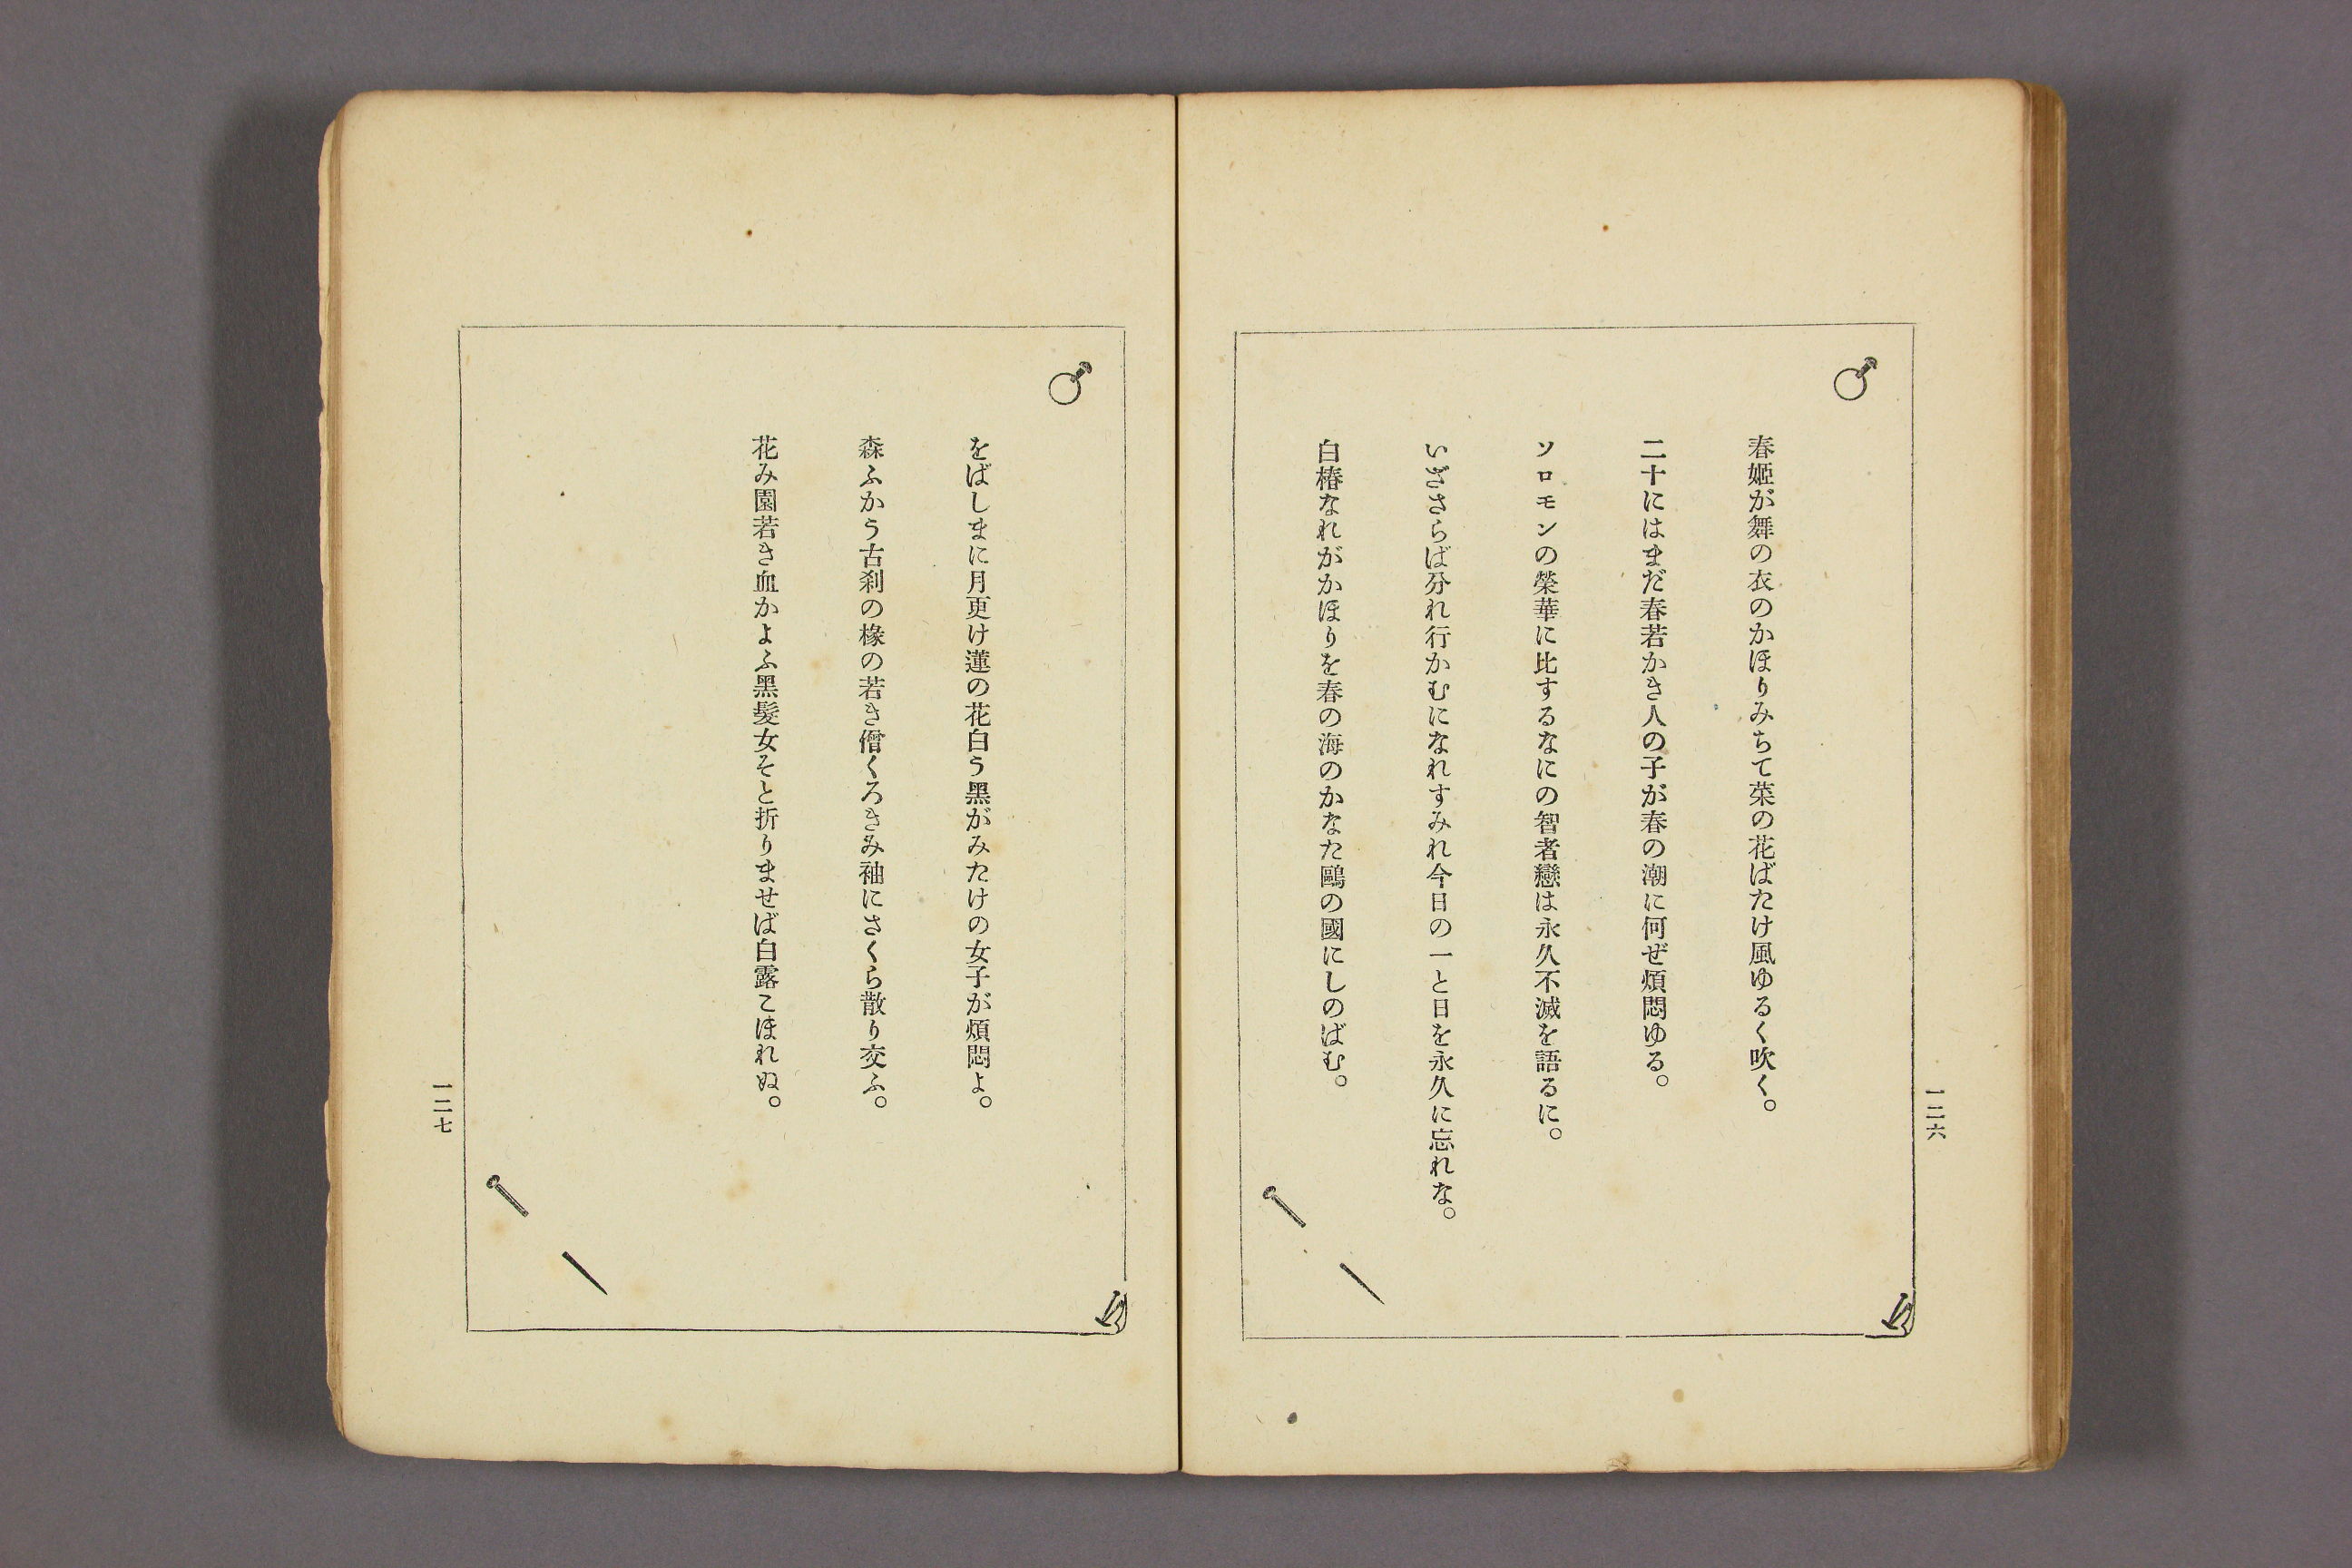 春姬が舞の衣のかほりみちて菜の花ばたけ風ゆるく吹く。
二十にはまだ春若かき人の子が春の潮に何ぜ煩悶ゆる。
ソロモンの榮華に比するなにの智者戀は永久不滅を語るに。
いざさらば分れ行かむになれすみれ今日の一と日を永久に忘れな。
白椿なれがかほりを春の海のかなた鷗の國にしのばむ。
一二六
をばしまに月更け蓮の花白う黑がみたけの女子が煩悶よ。
森ふかう古刹の椽の若き僧くろきみ袖にさくら散り交ふ。
花み園若き血かよふ黑髮女そと折りませば白露こほれぬ。
一二七